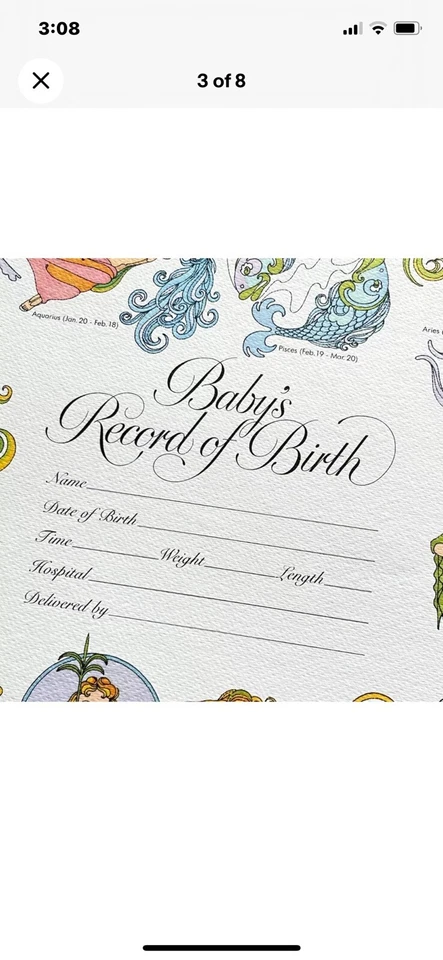 3:08
3 of 8
Aquarius (Jan. 20 - Feb. 18)
Pisces (Feb. 19 - Mar. 20)
Aries
Baby's
Record of Birth
Name
Date of Birth
Time Weight Length
Hospital
Delivered by